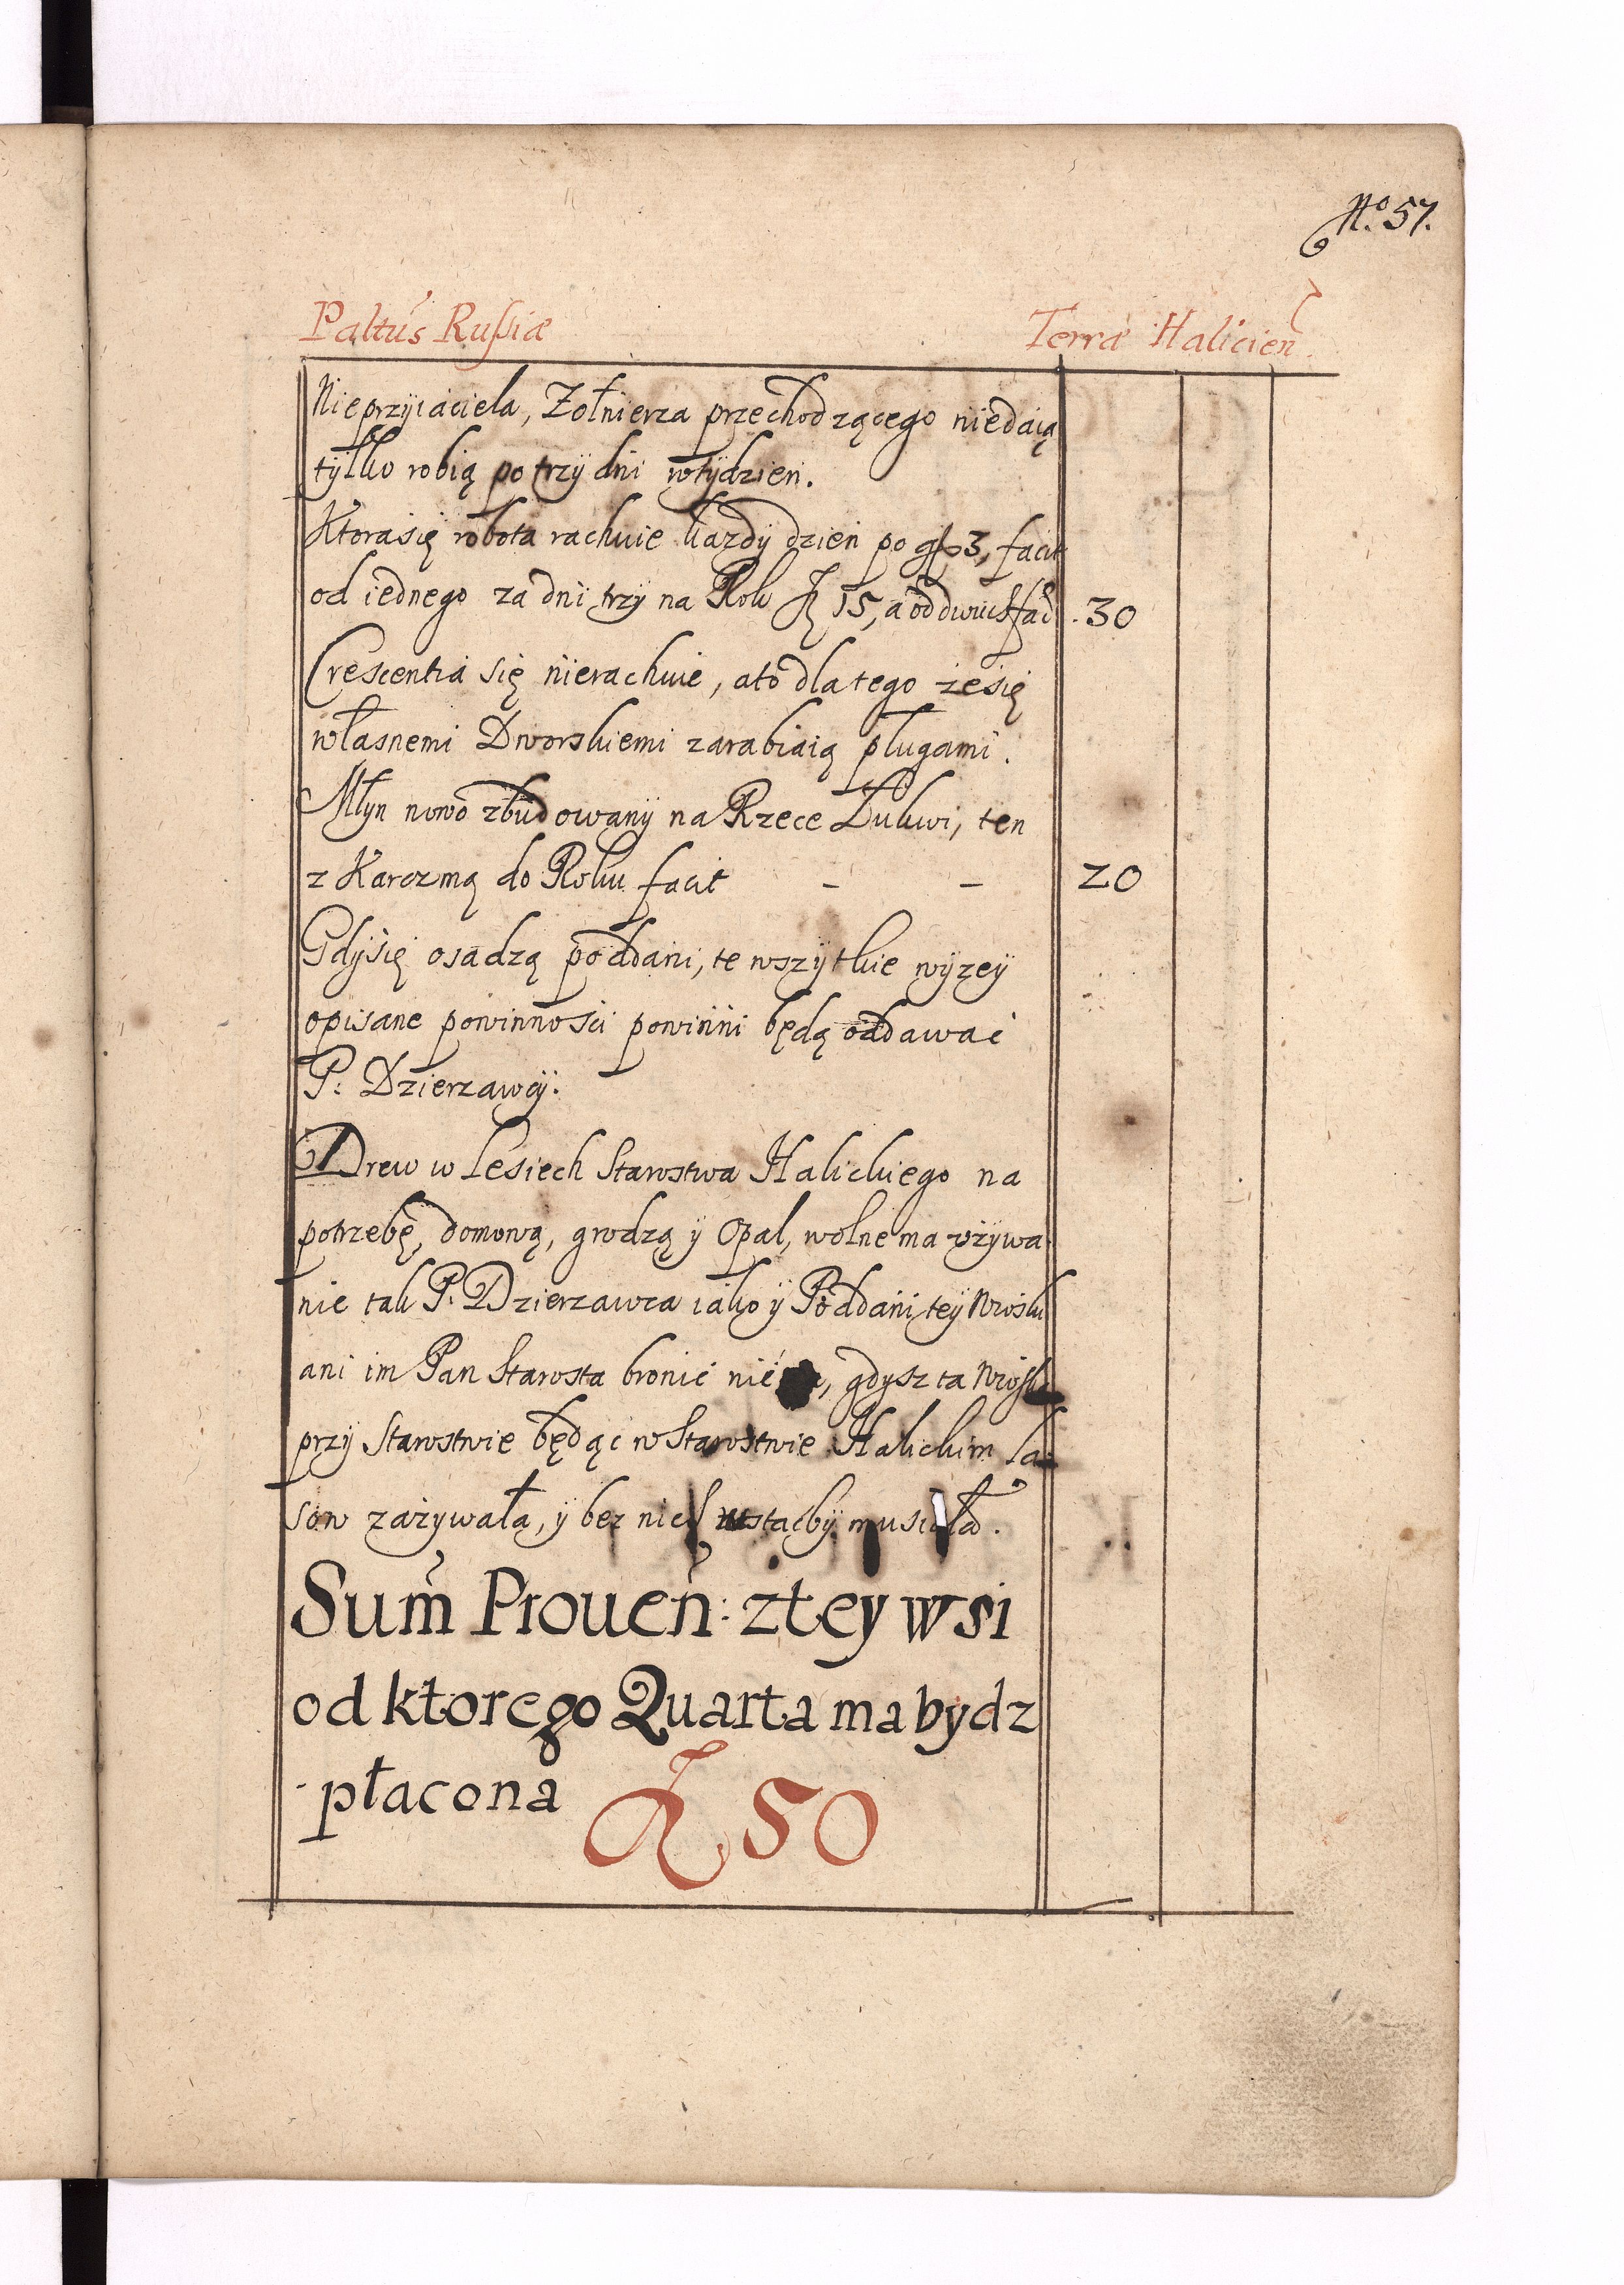 No. 57.
Paltus Rusſiæ Terræ Halicien
Nieprzÿiaciela, Zołnierza przechodzącego niedaią
tÿlko robią po trzÿ dni wtÿdzien.
Ktorasię robota rachuie każdÿ dzień po gr 3, facit
od iednego za dni trzÿ na Rok Zł 15, a od dwuch fac 30
Crescentia się nierachuie, ato dlatego żesię
własnemi Dworskiemi zarabiaią pługami.
Młyn nowo zbudowanÿ na Rzece Łukwi, ten
z Karczmą do Roku facit - - 20
Gdÿsię osadzą poddani, te wszÿtkie wÿzeÿ
opisane powinnosci powinni będą oddawać
P: Dzierzawcÿ.
Drew w Lesiech Starostwa Halickiego na
potrzebę, domową, grodzą ÿ Opał, wolne ma vżÿwa
nie tak P. Dzierzawca iako ÿ Poddani teÿ Wioski
ani im Pan Starosta bronić nie, gdÿsz ta Wioska
przÿ Starostwie będąc w Starostwie Halickim La
sow zażywała, ÿ bez nich zostacbÿ musiała.
Sum̄ Prouen̄: ztey wsi
od ktorego Quarta ma bydz
płacona Zł 50